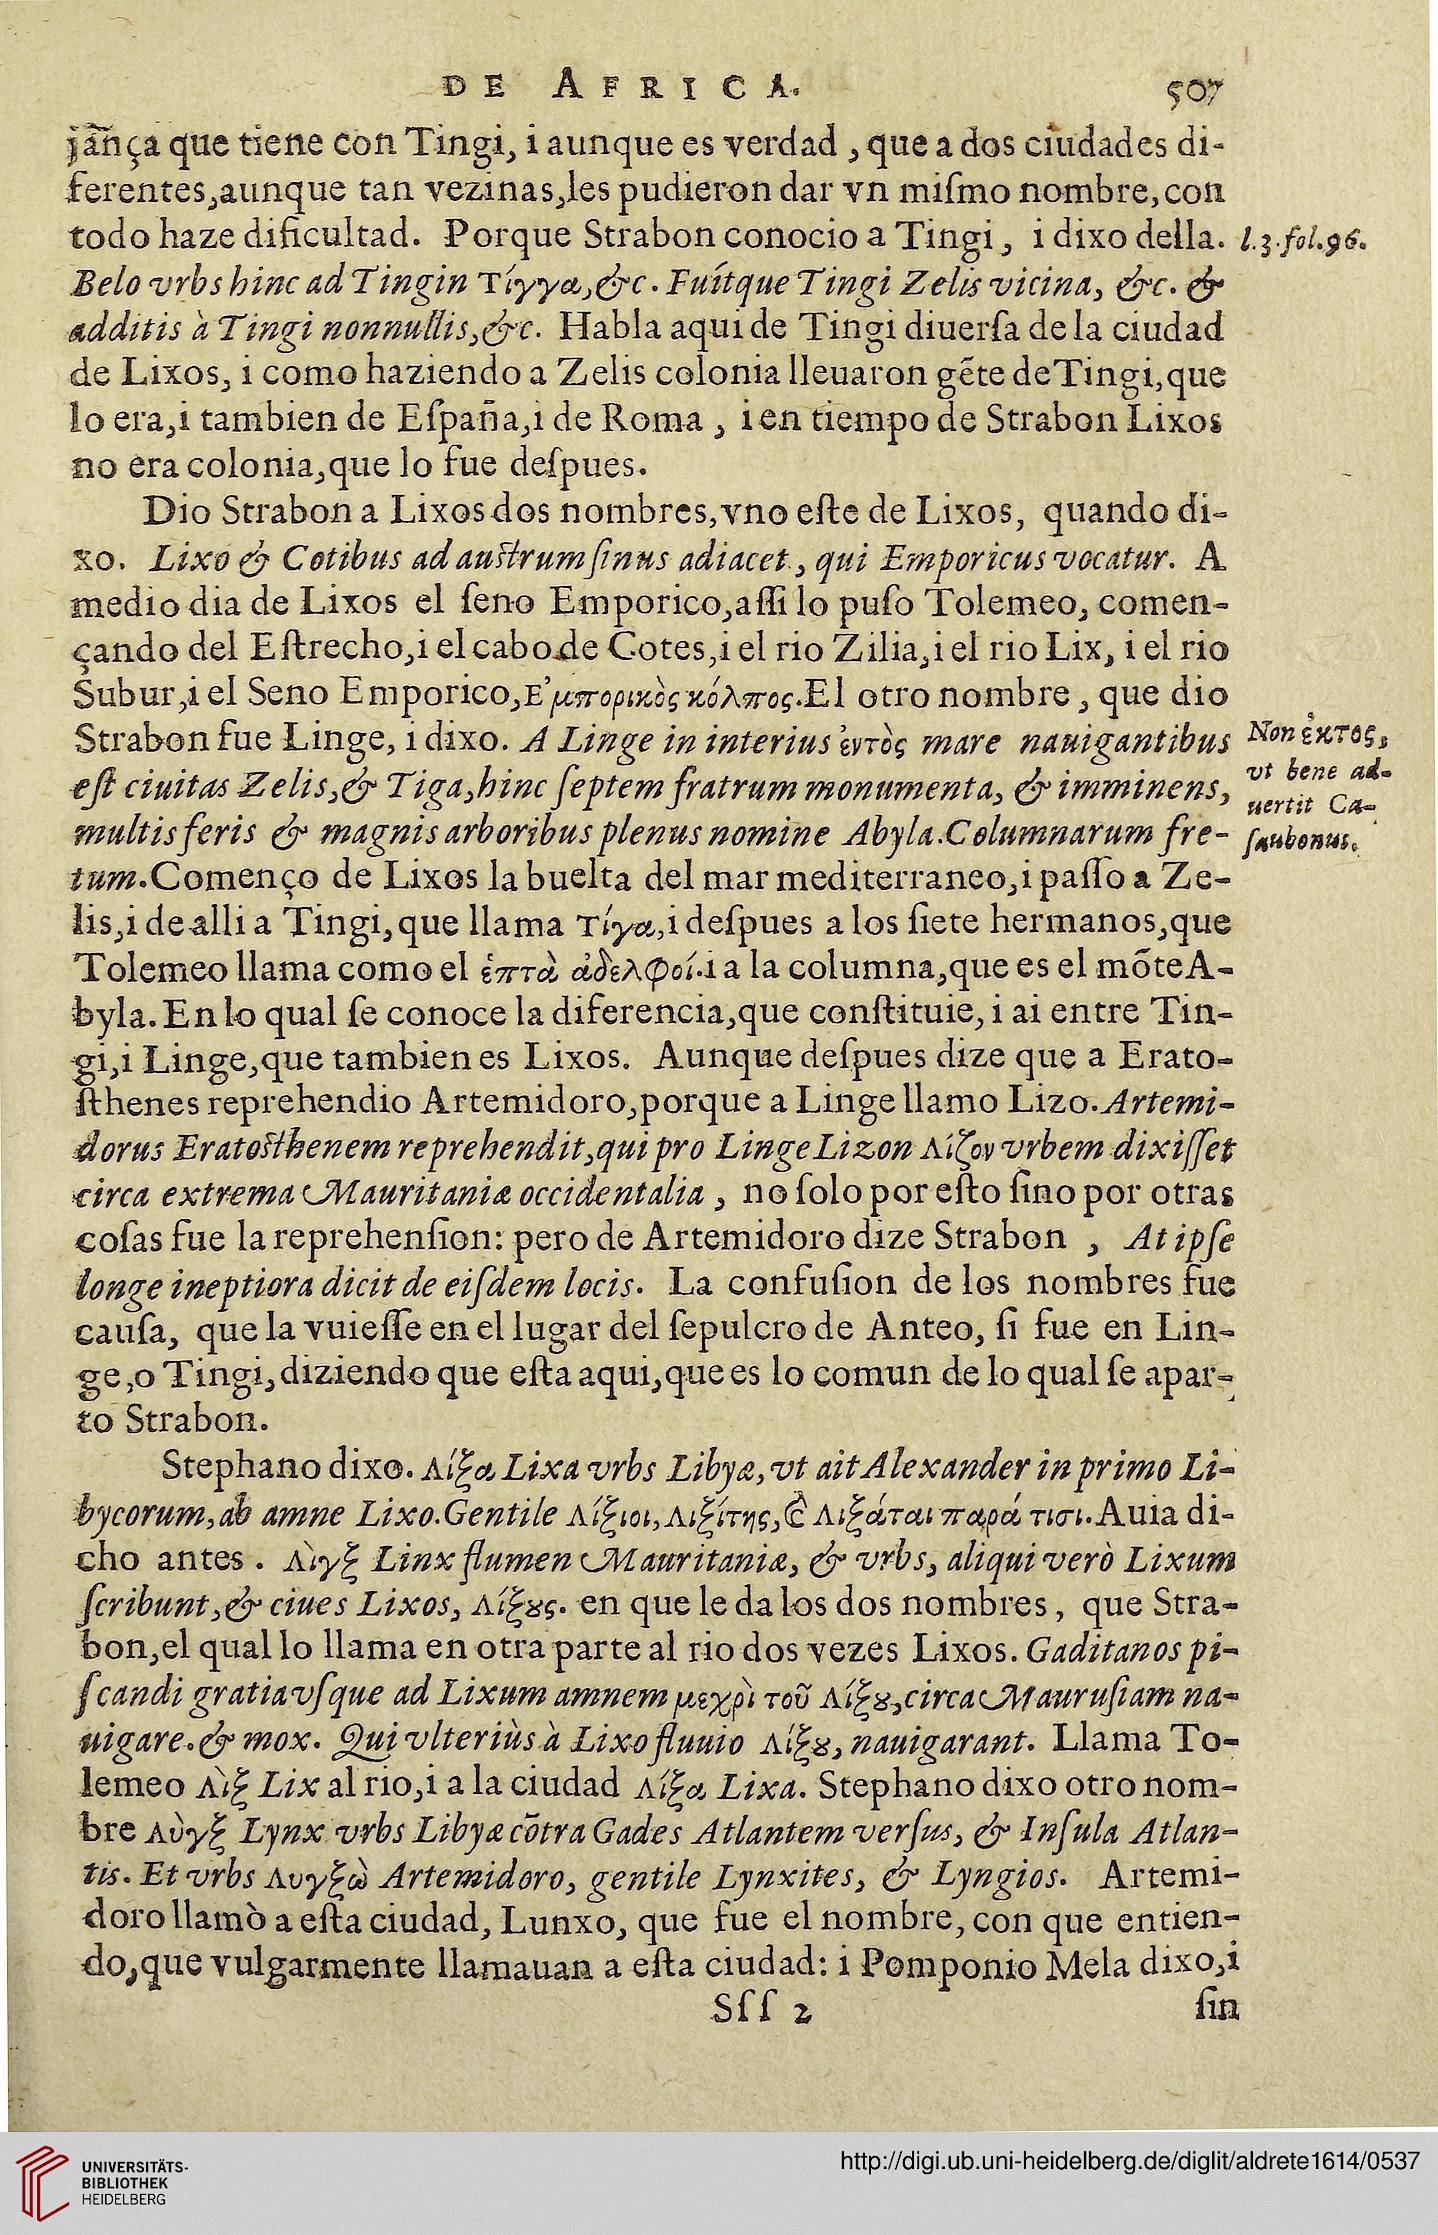 DE AFRICA. 507
jāñça que tiene con Tingi, i aunque es verdad, que a dos ciudades di-
ferentes, aunque tan vezinas, les pudieron dar vn miſmo nombre, con
todo haze dificultad. Porque Strabon conocio a Tingi, i dixo della. l.3.fol.96.
Belo vrbs hinc ad Tingin Τίγγα, &c. Fuítque Tingi Zelis vicina, &c. &
additis à Tingi nonnullis, &c. Habla aqui de Tingi diuerſa de la ciudad
de Lixos, i como haziendo a Zelis colonia lleuaron gẽte de Tingi, que
lo era, i tambien de Eſpaña, i de Roma, i en tiempo de Strabon Lixos
no era colonia, que lo fue deſpues.
Dio Strabon a Lixos dos nombres, vno eſte de Lixos, quando di-
xo. Lixo & Cotibus ad auſtrum ſinus adiacet, qui Emporicus vocatur. A
medio dia de Lixos el ſeno Emporico, aſſi lo puſo Tolemeo, comen-
çando del Eſtrecho, i el cabo de Cotes, i el rio Zilia, i el rio Lix, i el rio
Subur, i el Seno Emporico, Ε᾽μπορικὸς κόλπος. El otro nombre, que dio
Strabon fue Linge, i dixo. A Linge in interius ἐντὸς mare nauigantibus
eſt ciuitas Zelis, & Tiga, hinc ſeptem fratrum monumenta, & imminens,
multis feris & magnis arboribus plenus nomine Abyla. Columnarum fre-
tum. Començo de Lixos la buelta del mar mediterraneo, i paſſo a Ze-
lis, i de alli a Tingi, que llama Τίγα, i deſpues a los ſiete hermanos, que
Tolemeo llama como el ἑπτὰ ἀδελφοί. i a la columna, que es el mõte A-
byla. En lo qual ſe conoce la diferencia, que conſtituie, i ai entre Tin-
gi, i Linge, que tambien es Lixos. Aunque deſpues dize que a Erato-
ſthenes reprehendio Artemidoro, porque a Linge llamo Lizo. Artemi-
dorus Eratoſthenem reprehendit, qui pro Linge Lizon Λίζον vrbem dixiſſet
circa extrema Mauritaniæ occidentalia, no ſolo por eſto ſino por otras
coſas fue la reprehenſion: pero de Artemidoro dize Strabon, At ipſe
longe ineptiora dicit de eiſdem locis. La confuſion de los nombres fue
cauſa, que la vuieſſe en el lugar del ſepulcro de Anteo, ſi fue en Lin-
ge, o Tingi, diziendo que eſta aqui, que es lo comun de lo qual ſe apar-
to Strabon.
Stephano dixo. Λίξα Lixa vrbs Libyæ, vt ait Alexander in primo Li-
bycorum, ab amne Lixo. Gentile Λίξιοι, Λιξίτης, & Λιξάται παρά τισι. Auia di-
cho antes. Λὶγξ Linx flumen Mauritaniæ, & vrbs, aliqui verò Lixum
ſcribunt, & ciues Lixos, Λίξȣς. en que le da los dos nombres, que Stra-
bon, el qual lo llama en otra parte al rio dos vezes Lixos. Gaditanos pi-
ſcandi gratia vſque ad Lixum amnem μεχρὶ τοῦ Λίξȣ, circa Mauruſiam na-
uigare. & mox. Qui vlteriùs à Lixo fluuio Λίξȣ, nauigarant. Llama To-
lemeo Λὶξ Lix al rio, i a la ciudad Λίξα Lixa. Stephano dixo otro nom-
bre Λὺγξ Lynx vrbs Libyæ cõtra Gades Atlantem verſus, & Inſula Atlan-
tis. Et vrbs Λυγξὼ Artemidoro, gentile Lynxites, & Lyngios. Artemi-
doro llamò a eſta ciudad, Lunxo, que fue el nombre, con que entien-
do, que vulgarmente llamauan a eſta ciudad: i Pomponio Mela dixo, i
Sſſ 2 ſin
Non ἐκτος,
vt bene ad-
uertit Ca-
ſaubonus.
UNIVERSITÄTS-
BIBLIOTHEK
HEIDELBERG
http://digi.ub.uni-heidelberg.de/diglit/aldrete1614/0537